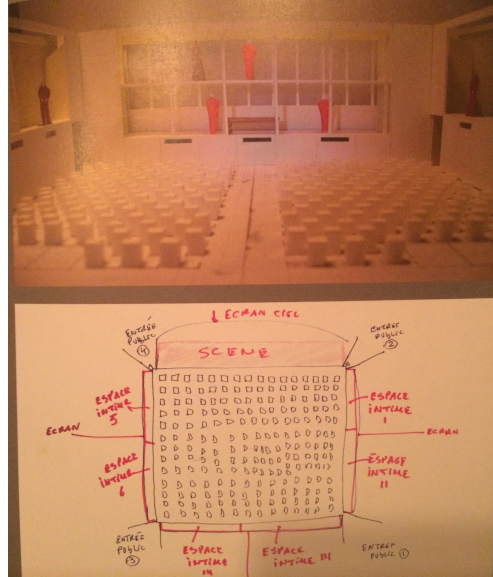 ↓ ECRAN CIEL
ENTRÉE
PUBLIC
④
ENTRÉE
PUBLIC
②
SCENE
ESPACE
iNTiME
5
ESPACE
iNTiME
I
ECRAN
ECRAN
ESPACE
iNTiME
6
ESPACE
iNTiME
II
ENTRÉE
PUBLIC
③
ESPACE
iNTiME
ESPACE
iNTiME III
ENTREE
PUBLIC ①